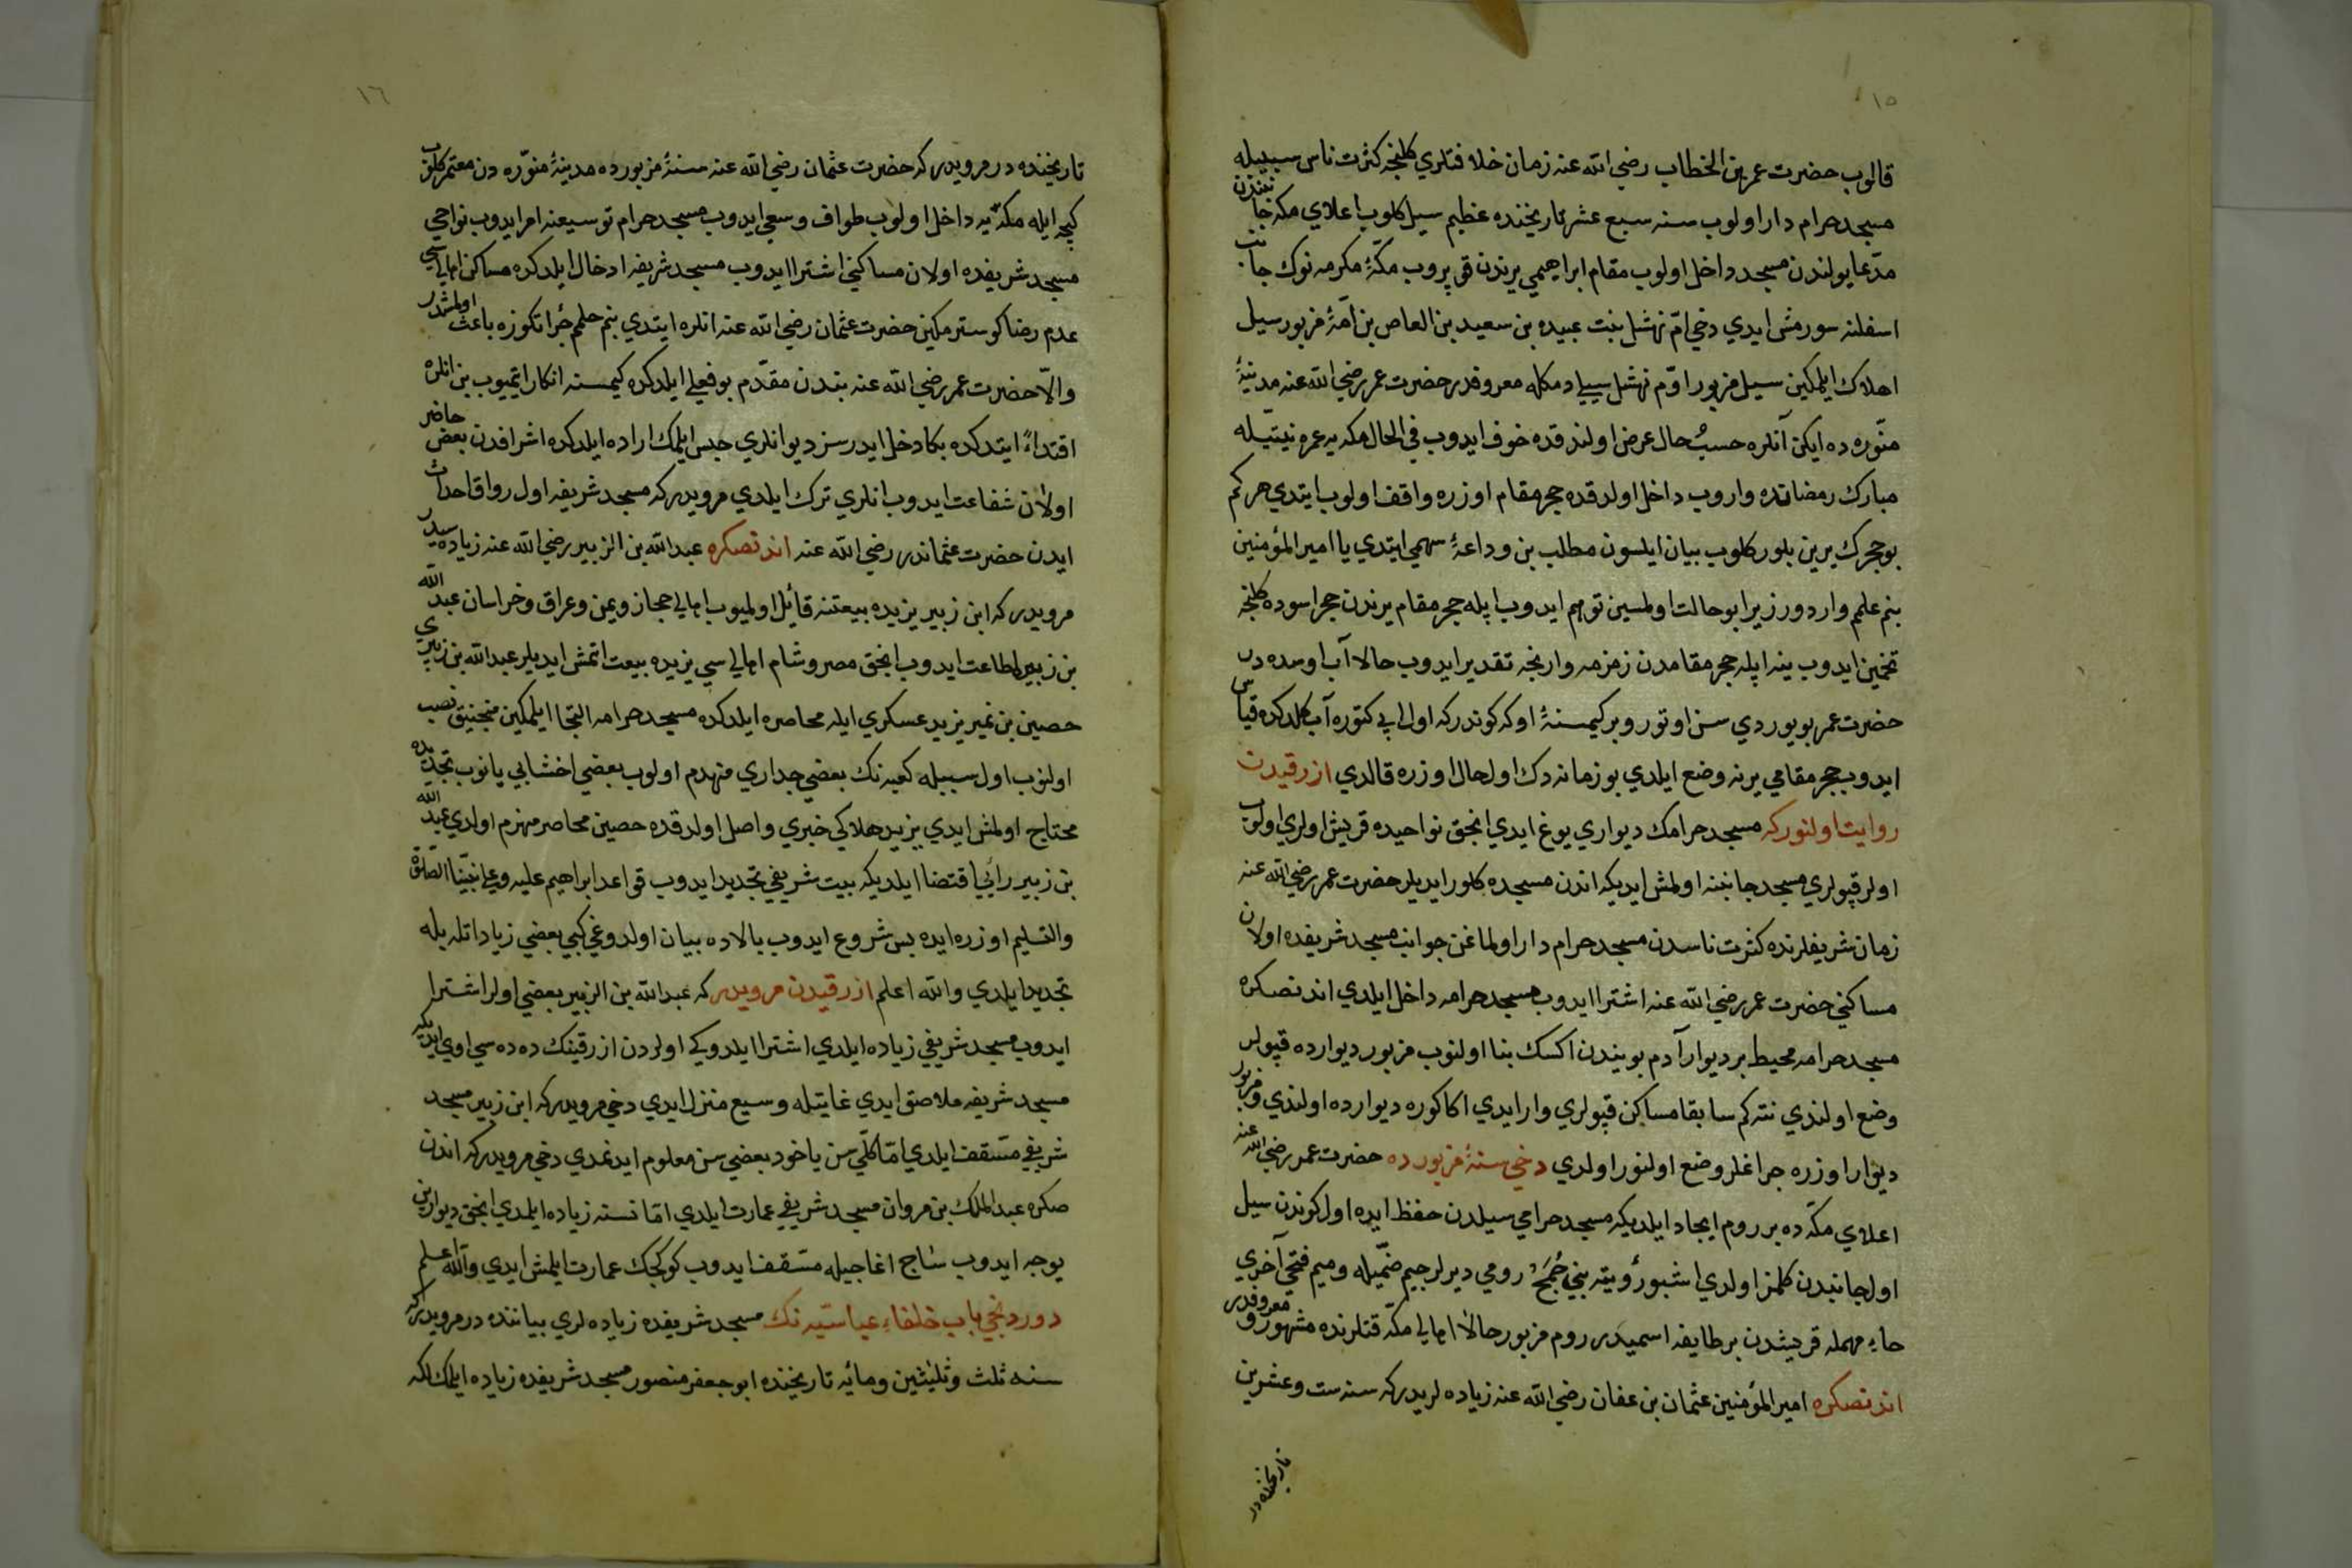 ١٥
قالوب حضرت عمر بن الخطاب رضي الله عنه زمان خلافتلري كلنجه كثرت ناس سببيله
مسجد حرام دار اولوب سنه سبع عشر تاريخنده عظيم سيل كلوب اعلاي مكه جانبندن
مدّعا يولندن مسجد داخل اولوب مقام ابراهيمي يرندن قوپروب مكّۀ مكرمه نوك جانب
اسفلنه سورمش ايدي دخي امّ نهشل بنت عبيده بن سعيد بن العاص بن اميۀ مزبور سيل
اهلاك ايلمكين سيل مزبور اوّم نهشل سييلي ديمكله معروفدر حضرت عمر رضي الله عنه مدينۀ
منّوره ده ايكن آنلره حسب حال عرض اولندقده خوف ايدوب في الحال مكه يه عمره نيتيله
مبارك رمضانده واروب داخل اولدقده حجر مقام اوزره واقف اولوب ايتدي هر كم
بو حجرك يرين بلور كلوب بيان ايلسون مطلب بن وداعۀ سهمي ايتدي يا امير المؤمنين
بنم علمم واردور زيرا بو حالت اولمسين توهم ايدوب ايپله حجر مقام يرندن حجر اسوده كلنجه
تخمين ايدوب ينه ايپله حجر مقامدن زمزمه وارنجه تقدير ايدوب حالا آب اومده در
حضرت عمر بويوردي سن اوتور و بر كيمسنۀ اوكه كوندر كه اول ايپي كتوره آب كلدكده قياس
ايدوب حجر مقامي يرنه وضع ايلدي بو زمانه دك اول حال اوزره قالدي ازرقيدن
روايت اولنور كه مسجد حرامك ديواري يوغ ايدي انجق نواحيده قريش اولري اولوب
اولر قپولري مسجد جانبنه اولمش ايديكه اندن مسجده كلور ايديلر حضرت عمر رضي الله عنه
زمان شريفلرنده كثرت ناسدن مسجد حرام دار اولماغن جوانب مسجد شريفده اولان
مساكني حضرت عمر رضي الله عنه اشترا ايدوب مسجد حرامه داخل ايلدي اندنصكره
مسجد حرامه محيط بر ديوار آدم بويندن اكسك بنا اولنوب مزبور ديوارده قپولر
وضع اولندي نته كم سابقا مساكن قپولري وار ايدي اكا كوره ديوارده اولندي و مزبور
ديوار اوزره چراغلر وضع اولنور اولدي دخي سنۀ مزبورده حضرت عمر رضي الله عنه
اعلاي مكّه ده بر روم ايجاد ايلديكه مسجد حرامي سيلدن حفظ ايده اول كوندن سيل
اول جانبدن كلمز اولدي اشبو رؤويته بني جُمَح رومي ديرلر جيم ضمّيله و ميم فتحي آخري
حاء مهمله قريشدن بر طايفه اسميدر روم مزبور حالا اهالي مكّه قتلرنده مشهور و معروفدر
اندنصكره امير المؤمنين عثمان بن عفان رضي الله عنه زياده لريدر كه سنه ست و عشرين
تاريخنده در
١٦
تاريخنده در مرويدر كه حضرت عثمان رضي الله عنه سنۀ مزبورده مدينۀ منوّره دن معتمر كلوب
كيجه ايله مكّه يه داخل اولوب طواف و سعي ايدوب مسجد حرام توسيعنه امر ايدوب نواحي
مسجد شريفده اولان مساكني اشترا ايدوب مسجد شريفه ادخال ايلدكده مساكن اهاليسي
عدم رضا كوسترمكين حضرت عثمان رضي الله عنه انلره ايتدي بنم حلمم جرأتكوزه باعث اولمشدر
والّا حضرت عمر رضي الله عنه بندن مقدّم بو فعلي ايلدكده كيمسنه انكار ايتميوب بن انلره
اقتداءً ايتدكده بكا دخل ايدرسز ديو انلري حبس ايلمك اراده ايلدكده اشرافدن بعض حاضر
اولان شفاعت ايدوب انلري ترك ايلدي مرويدر كه مسجد شريفه اول رواق احداث
ايدن حضرت عثماندر رضي الله عنه اندنصكره عبد الله بن الزبير رضي الله عنه زياده سيدر
مرويدر كه ابن زبير يزيده بيعتنه قائل اولميوب اهالي حجاز و يمن و عراق و خراسان عبد الله
بن زبيره اطاعت ايدوب انجق مصر و شام اهاليسي يزيده بيعت اتمش ايديلر عبد الله بن زبيري
حصين بن نمير يزيد عسكري ايله محاصره ايلدكده مسجد حرامه التجا ايلمكين منجنيق نصب
اولنوب اول سببله كعبه نك بعضي جداري منهدم اولوب بعضي اخشابي يانوب تجديده
محتاج اولمش ايدي يزيد هلاكي خبري واصل اولدقده حصين محاصر منهزم اولدي عبد الله
بن زبير رأيي اقتضا ايلديكه بيت شريفي تجديد ايدوب قواعد ابراهيم عليه و علي نبيّنا الصّلوة
والتسليم اوزره ايده پس شروع ايدوب بالاده بيان اولدوغي كبي بعضي زياداتله بيله
تجديد ايلدي والله اعلم ازرقيدن مرويدر كه عبد الله بن الزبير بعضي اولر اشترا
ايدوب مسجد شريفي زياده ايلدي اشترا ايلدوكي اولردن ازرقينك ده ده سي اوي ايديكه
مسجد شريفه ملاصق ايدي غايتيله وسيع منزل ايدي دخي مرويدر كه ابن زبير مسجد
شريفي مسّقف ايلدي امّا كلّي سن ياخود بعضي سن معلوم ايدنمدي دخي مرويدر كه اندن
صكره عبد الملك بن مروان مسجد شريفي عمارت ايلدي امّا نسنه زياده ايلمدي انجق ديوارين
يوجه ايدوب ساج اغاجيله مسّقف ايدوب كوكچك عمارت ايلمش ايدي والله اعلم
دوردنجي باب خلفاء عباسّيه نك مسجد شريفده زياده لري بياننده در مرويدر كه
سنه ثلث و ثلثين و مائه تاريخنده ابو جعفر منصور مسجد شريفده زياده ايلمك اكه